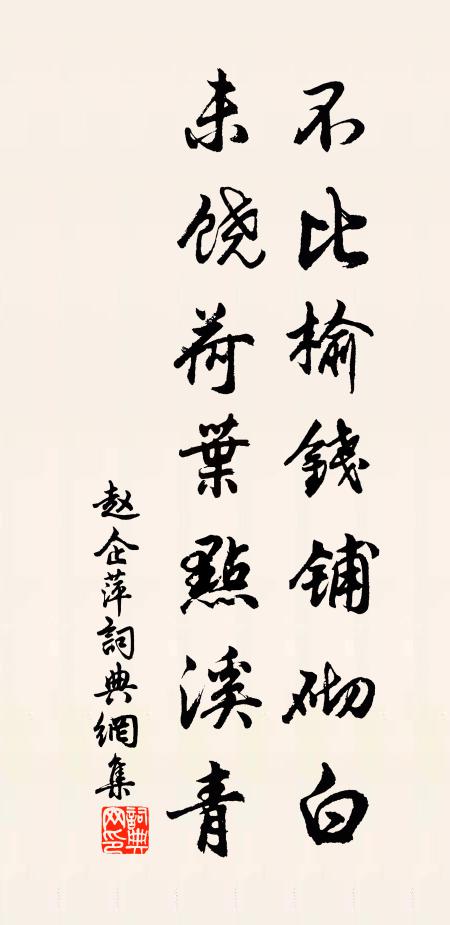 不比榆錢铺砌白
未饶荷葉點溪青
赵企萍詞典網集
詞典
网印